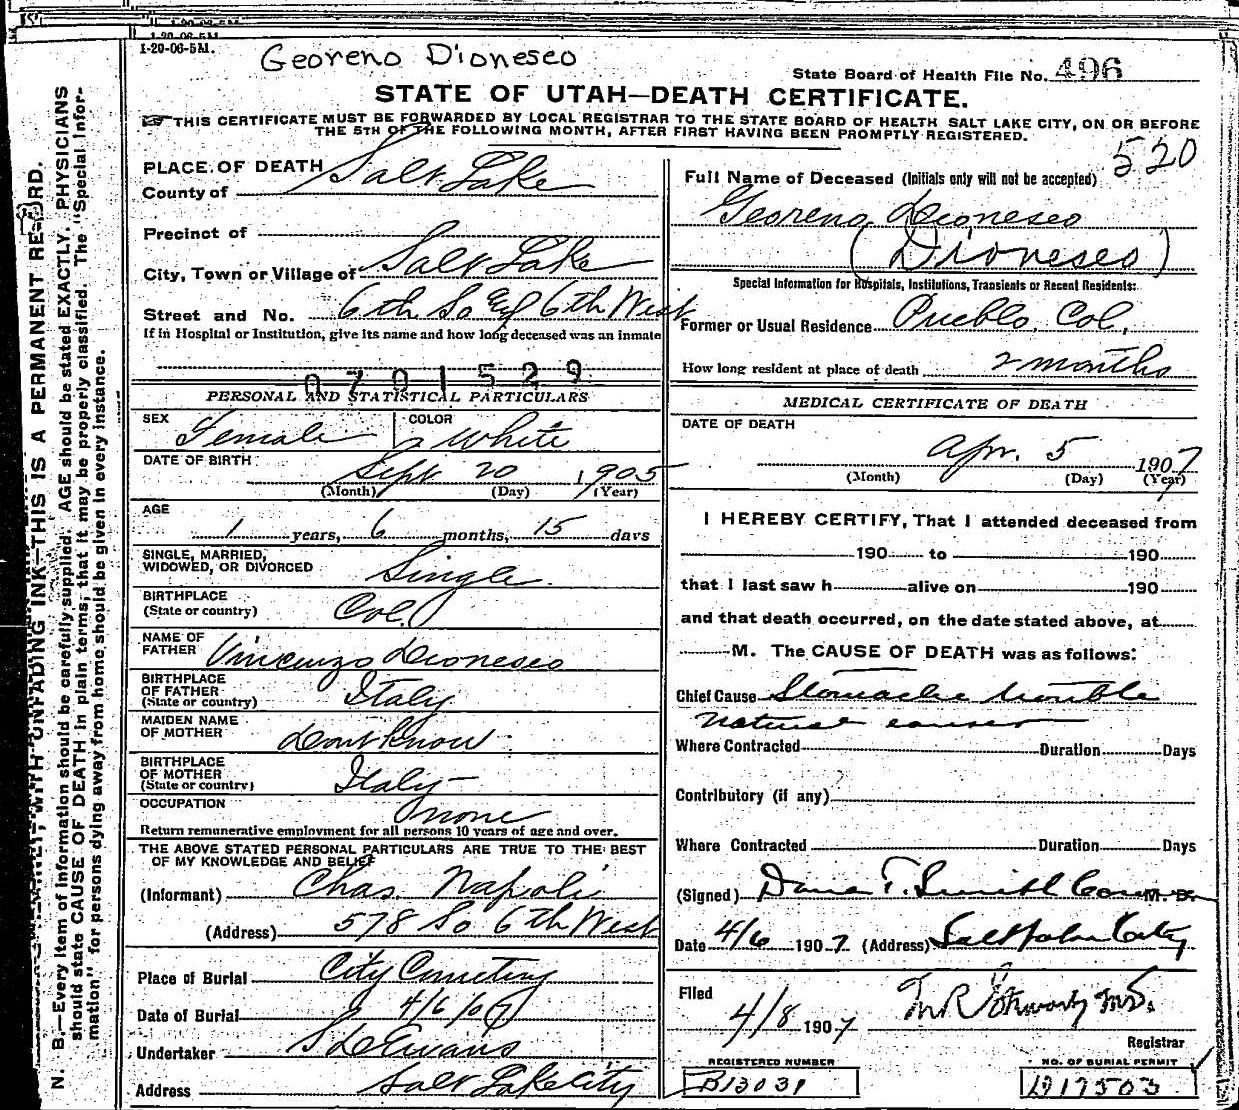 1-20-06-5M.
Georeno Dioneseo
State Board of Health File No. 496
STATE OF UTAH—DEATH CERTIFICATE.
THIS CERTIFICATE MUST BE FORWARDED BY LOCAL REGISTRAR TO THE STATE BOARD OF HEALTH SALT LAKE CITY, ON OR BEFORE
THE 5TH OF THE FOLLOWING MONTH, AFTER FIRST HAVING BEEN PROMPTLY REGISTERED.
520
N. B.—Every item of information should be carefully supplied. AGE should be stated EXACTLY. PHYSICIANS
should state CAUSE OF DEATH in plain terms, that it may be properly classified. The "Special Infor-
mation" for persons dying away from home should be given in every instance.
UNFADING INK—THIS IS A PERMANENT RECORD.
PLACE OF DEATH
County of Salt Lake
Precinct of
City, Town or Village of Salt Lake
Street and No. 6th So 6th West
If in Hospital or Institution, give its name and how long deceased was an inmate
0701529
PERSONAL AND STATISTICAL PARTICULARS
SEX Female COLOR White
DATE OF BIRTH Sept 20 1905
(Month) (Day) (Year)
AGE
1 years, 6 months, 15 days
SINGLE, MARRIED,
WIDOWED, OR DIVORCED Single
BIRTHPLACE
(State or country) Col.
NAME OF
FATHER Vincenzo Dioneseo
BIRTHPLACE
OF FATHER
(State or country) Italy
MAIDEN NAME
OF MOTHER Dont Know
BIRTHPLACE
OF MOTHER
(State or country) Italy
OCCUPATION none
Return remunerative employment for all persons 10 years of age and over.
THE ABOVE STATED PERSONAL PARTICULARS ARE TRUE TO THE BEST
OF MY KNOWLEDGE AND BELIEF
(Informant) Chas. Napoli
(Address) 578 So 6th West
Place of Burial City Cemetery
Date of Burial 4/6/07
Undertaker S D Evans
Address Salt Lake City
Full Name of Deceased (Initials only will not be accepted)
Georeno Dioneseo
(Dioneseo)
Special Information for Hospitals, Institutions, Transients or Recent Residents:
Former or Usual Residence Pueblo, Col.
How long resident at place of death 2 months
MEDICAL CERTIFICATE OF DEATH
DATE OF DEATH
Apr. 5 1907
(Month) (Day) (Year)
I HEREBY CERTIFY, That I attended deceased from
190 to 190
that I last saw h alive on 190
and that death occurred, on the date stated above, at
M. The CAUSE OF DEATH was as follows:
Chief Cause Stomache trouble
Natural causes
Where Contracted Duration Days
Contributory (if any)
Where Contracted Duration Days
(Signed) Dana T. Smith M. D.
Date 4/6 1907 (Address) Salt Lake City
Filed
4/8 1907
Registrar
REGISTERED NUMBER
B13031
NO. OF BURIAL PERMIT
D17503